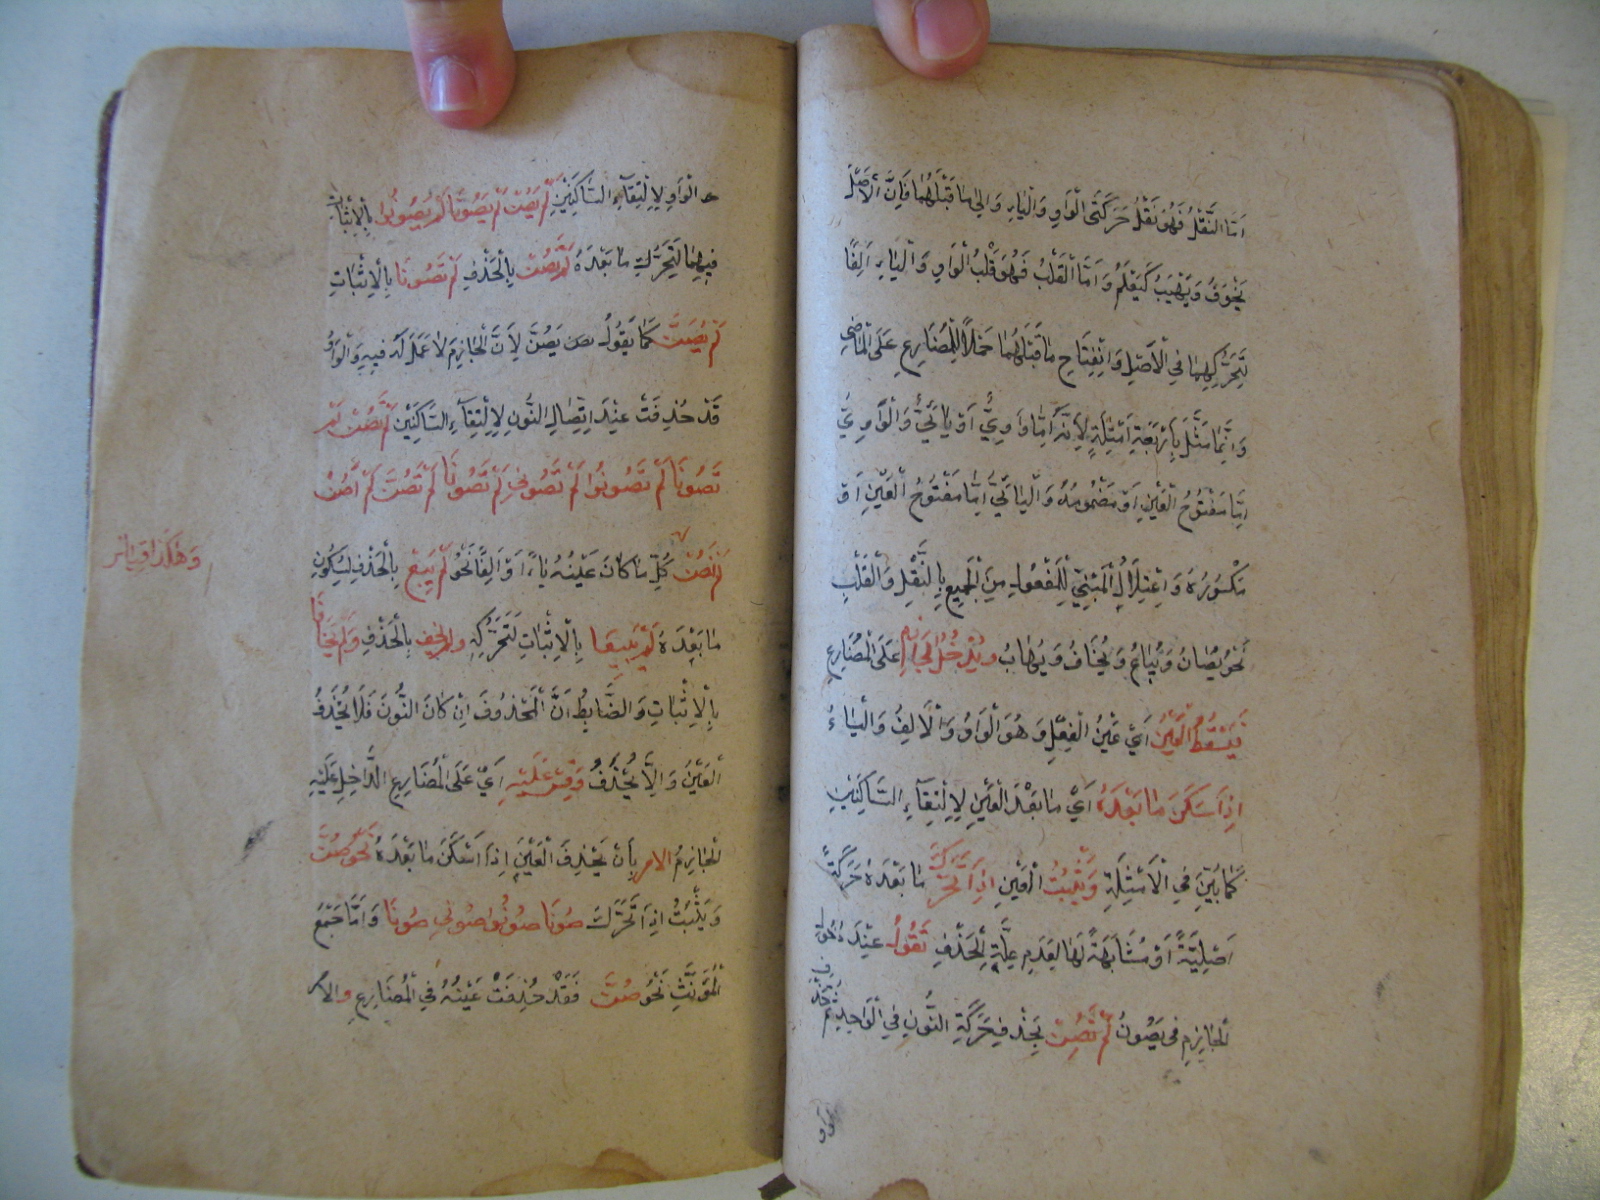 اَمَّا النَّقْلُ فَهُوَ نَقْلُ حَرَكَتَىِ الْوَاوِ وَالْيَاءِ وَاِلىٰ مَا قَبْلَهُمَا فَاِنَّ الْاَصْلَ
يَخْوَفُ وَيَهْيَبُ كَيَعْلَمُ وَاَمَّا الْقَلْبُ فَهُوَ قَلْبُ الْوَاوِ وَالْيَاءِ اَلِفًا
لِتَحَرُّكِهِمَا فِي الْاَصْلِ وَانْفِتَاحِ مَا قَبْلَهُمَا حَمْلاً لِلْمُضَارِعِ عَلَى الْمَاضِي
وَاِنَّمَا مَثَّلَ بِاَرْبَعَةِ اَمْثِلَةٍ لِاَنَّهُ اَمَّا وَاوِيٌّ اَوْ يَائِيٌّ وَالْوَاوِيُّ
اِمَّا مَفْتُوحُ الْعَيْنِ اَوْ مَضْمُومُهُ وَالْيَائِيُّ اِمَّا مَفْتُوحُ الْعَيْنِ اَوْ
مَكْسُورُهُ وَاِعْتِلَالُ الْمَبْنِيِّ لِلْمَفْعُولِ مِنَ الْجَمِيعِ بِالنَّقْلِ وَالْقَلْبِ
نَحْوُ يُصَانُ وَيُبَاعُ وَيُخَافُ وَيُهَابُ وَيَدْخُلُ الْجَازِمُ عَلَى الْمُضَارِعِ
فَيَسْقُطُ الْعَيْنُ اَيْ عَيْنُ الْفِعْلِ وَهُوَ الْوَاوُ وَالْاَلِفُ وَالْيَاءُ
اِذَا سَكَنَ مَا بَعْدَهُ اَيْ مَا بَعْدَ الْعَيْنِ لِاِلْتِقَاءِ السَّاكِنَيْنِ
كَمَا بَيِّنَ فِي الْاَمْثِلَةِ وَيَثْبُتُ الْعَيْنِ اِذَا تَحَرَّكَ مَا بَعْدَهُ حَرَكَةً
اَصْلِيَّةً اَوْ مُشَابَهَةً لَهَا لِعَدَمِ عِلَّةِ الْحَذْفِ تَقُولُ عِنْدَ دُخُولِ
الْجَازِمِ فى يَصُونُ لَمْ يَصُنْ بِحَذْفِ حَرَكَةِ النُّونِ فِي الْوَاحِدِ ثُمَّ حذف
الواو
الْوَاوِ لِاِلْتِقَاءِ السَّاكِنَيْنِ لَمْ يَصُنْ لَمْ يَصُونَا لَمْ يَصُونُوا بِالْاِثْبَاتِ
فِيهِمَا لِتَحَرُّكِ مَا بَعْدَهُ لَمْ تَصُنْ بِالْحَذْفِ لَمْ تَصُونَا بِالْاِثْبَاتِ
لَمْ يَصُنَّ كَمَا يَقُولُ يَصُنَّ لِاَنَّ الْجَازِمَ لَا عَمَلَ لَهُ فِيهِ وَالْوَاوُ
قَدْ حُذِفَتْ عِنْدَ اِتِّصَالِ النُّونِ لِاِلْتِقَاءِ السَّاكِنَيْنِ لَمْ تَصُنْ لَمْ
تَصُونَا لَمْ تَصُونُوا لَمْ تَصُونِي لَمْ تَصُونَا لَمْ تَصُنَّ لَمْ اَصُنْ
لَمْ نَصُنْ كُلِّ مَا كَانَ عَيْنُهُ يَاءً اَوْ اَلِفًا نَحْوُ لَمْ يَبِعْ بِالْحَذْفِ لِسُكُونِ
وَهٰكَذَا قِيَاسُ
مَا بَعْدَهُ لَمْ يَبِيعَا بِالْاِثْبَاتِ لِتَحَرُّكِهِ وَلَمْ يَخَفْ بِالْحَذْفِ وَلَمْ يَخَافَا
بِالْاِثْبَاتِ وَالضَّابِطُ اَنَّ الْمَحْذُوفَ اِنْ كَانَ النُّونَ فَلَا يُحْذَفُ
الْعَيْنُ وَاِلَّا يُحْذَفُ وَقِسْ عَلَيْهِ اَيْ عَلَى الْمُضَارِعِ الدَّاخِلِ عَلَيْهِ
الْجَازِمُ الامر بِاَنْ يَحْذِفَ الْعَيْنَ اِذَا اسْكَنَ مَا بَعْدَهُ نَحْوُ صُنْ
وَيَثْبُتُ اِذَا تَحَرَّكَ صُونَا صُونُوا صُونِي صُونَا وَاَمَّا جَمْعُ
الْمُؤَنَّثِ نَحْوُ صُنَّ فَقَدْ حُذِفَتْ عَيْنُهُ فِي الْمُضَارِعِ وَالامر